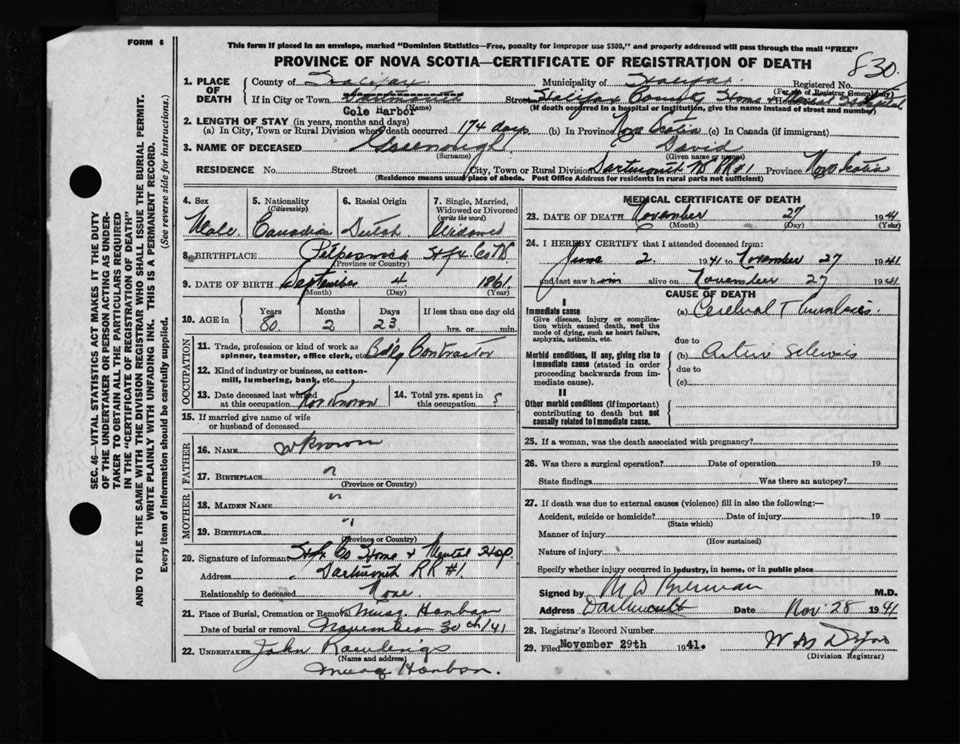 FORM 6
This form if placed in an envelope, marked "Dominion Statistics—Free, penalty for improper use $300," and properly addressed will pass through the mail "FREE"
PROVINCE OF NOVA SCOTIA—CERTIFICATE OF REGISTRATION OF DEATH
830
1. PLACE OF DEATH
County of Halifax
Municipality of Halifax
Registered No.
(For use of Registrar General only)
If in City or Town Dartmouth
Street Halifax County Home & Mental Hospital
(Name)
(If death occurred in a hospital or institution, give the name instead of street and number)
Cole Harbor
2. LENGTH OF STAY (in years, months and days)
(a) In City, Town or Rural Division where death occurred 174 days (b) In Province Nova Scotia (c) In Canada (if immigrant)
3. NAME OF DECEASED Greenough David
(Surname) (Given name or names)
RESIDENCE No. Street City, Town or Rural Division Dartmouth RR#1 Province Nova Scotia
(Residence means usual place of abode. Post Office Address for residents in rural parts not sufficient)
4. Sex
Male
5. Nationality
(Citizenship)
Canadian
6. Racial Origin
Dutch
7. Single, Married, Widowed or Divorced
(write the word)
Widowed
8. BIRTHPLACE Petpeswick Hfx. Co. N.S.
(Province or Country)
9. DATE OF BIRTH September 4 1861
(Month) (Day) (Year)
10. AGE in
Years Months Days If less than one day old
80 2 23 hrs. or min.
OCCUPATION
11. Trade, profession or kind of work as spinner, teamster, office clerk, etc. Bdlg Contractor
12. Kind of industry or business, as cotton-mill, lumbering, bank, etc.
13. Date deceased last worked at this occupation Not Known
14. Total yrs. spent in this occupation ?
15. If married give name of wife or husband of deceased
FATHER
16. NAME unknown
17. BIRTHPLACE "
(Province or Country)
MOTHER
18. MAIDEN NAME "
19. BIRTHPLACE "
(Province or Country)
20. Signature of informant Hfx. Co Home & Mental Hosp.
Address Dartmouth RR #1.
Relationship to deceased None
21. Place of Burial, Cremation or Removal Musq. Harbor
Date of burial or removal November 30th/41
22. UNDERTAKER John Rawlings
(Name and address)
Musq Harbor.
MEDICAL CERTIFICATE OF DEATH
23. DATE OF DEATH November 27 1941
(Month) (Day) (Year)
24. I HEREBY CERTIFY that I attended deceased from:
June 2 1941 to November 27 1941
and last saw him alive on November 27 1941
CAUSE OF DEATH
I
Immediate cause
Give disease, injury or complication which caused death, not the mode of dying, such as heart failure, asphyxia, asthenia, etc.
(a) Cerebral Thrombosis
due to
Morbid conditions, if any, giving rise to immediate cause (stated in order proceeding backwards from immediate cause).
(b) Arterio Sclerosis
due to
(c)
II
Other morbid conditions (if important) contributing to death but not causally related to immediate cause.
25. If a woman, was the death associated with pregnancy?
26. Was there a surgical operation? Date of operation 19
State findings Was there an autopsy?
27. If death was due to external causes (violence) fill in also the following:—
Accident, suicide or homicide? Date of injury 19
(State which)
Manner of injury
(How sustained)
Nature of injury
Specify whether injury occurred in industry, in home, or in public place
Signed by M D Brennan M.D.
Address Dartmouth Date Nov 28 1941
28. Registrar's Record Number
29. Filed November 29th 1941.
(Division Registrar)
SEC. 46—VITAL STATISTICS ACT MAKES IT THE DUTY
OF THE UNDERTAKER OR PERSON ACTING AS UNDERTAKER
TO OBTAIN ALL THE PARTICULARS REQUIRED
IN THE "CERTIFICATE OF REGISTRATION OF DEATH"
AND TO FILE THE SAME WITH THE DIVISION REGISTRAR WHO SHALL ISSUE THE BURIAL PERMIT.
WRITE PLAINLY WITH UNFADING INK. THIS IS A PERMANENT RECORD.
Every item of information should be carefully supplied. (See reverse side for instructions.)